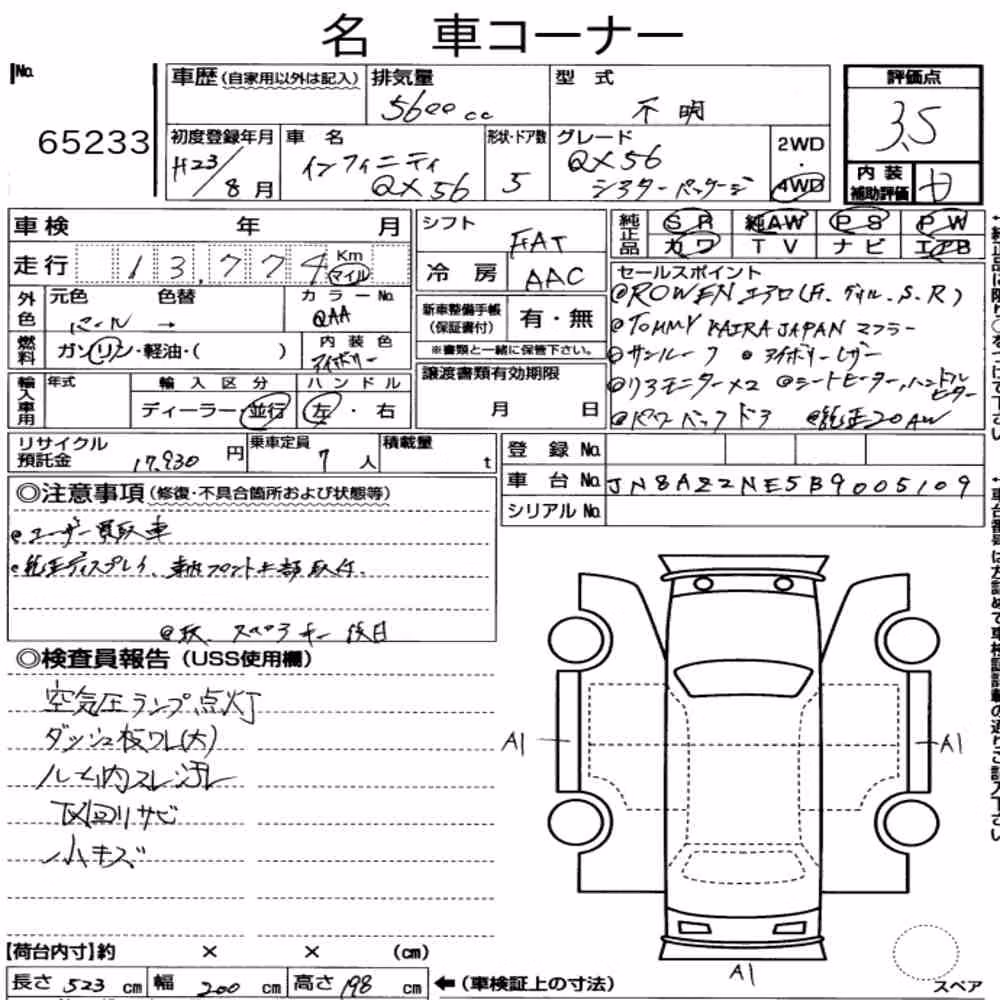 名 車コーナー
No. 65233
車歴(自家用以外は記入) 排気量 5600cc 型式 不明
初度登録年月 H23/8月 車名 インフィニティ QX56 形状・ドア数 5 グレード QX56 シアターパッケージ 2WD・4WD
評価点 3.5
内装補助評価
車検 年 月
走行 13,774 Km マイル
シフト FAT
冷房 AAC
純正品 SR 純AW PS PW
カワ TV ナビ エアB
外色 元色 パール → 色替 カラーNo. QAA
燃料 ガソリン・軽油・( ) 内装色 アイボリー
新車整備手帳(保証書付) 有・無
※書類と一緒に保管下さい。
セールスポイント
@ROWENエアロ(F.グリル.S.R)
@TOMMY KAIRA JAPAN マフラー
@サンルーフ @アイボリーレザー
@リアモニター×2 @シートヒーター,ハンドルヒーター
@パワーバックドア @純正20AW
輸入車用 年式 輸入区分 ディーラー・並行 ハンドル 左・右
譲渡書類有効期限 月 日
リサイクル預託金 17,930円 乗車定員 7人 積載量 t
登録No.
車台No. JN8AZ2NE5B9005109
シリアルNo.
◎注意事項(修復・不具合箇所および状態等)
@ユーザー買取車
@純正ディスプレイ、車検フロント下部取付.
@取、スペアキー後日
◎検査員報告(USS使用欄)
空気圧ランプ点灯
ダッシュ板ワレ(大)
ルーム内スレ汚レ
下回リサビ
小キズ
A1
A1
A1
【荷台内寸】約 × × (cm)
長さ 523cm 幅 200cm 高さ 198cm ←(車検証上の寸法)
スペア